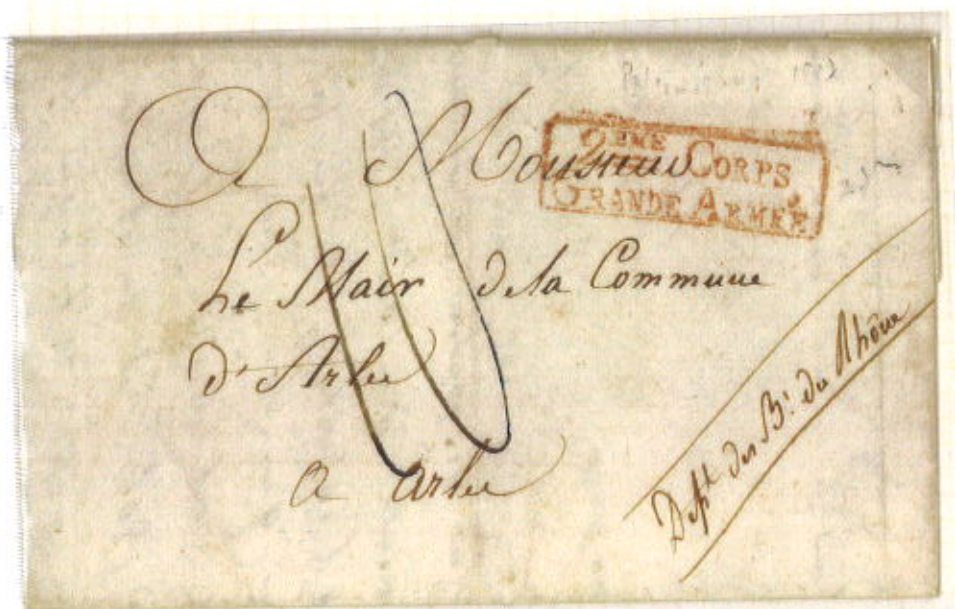 A Monsieur
2EME CORPS
GRANDE ARMÉE
Le Mair de la Commune
d'Arles
a arles
Dept. des B. du Rhône